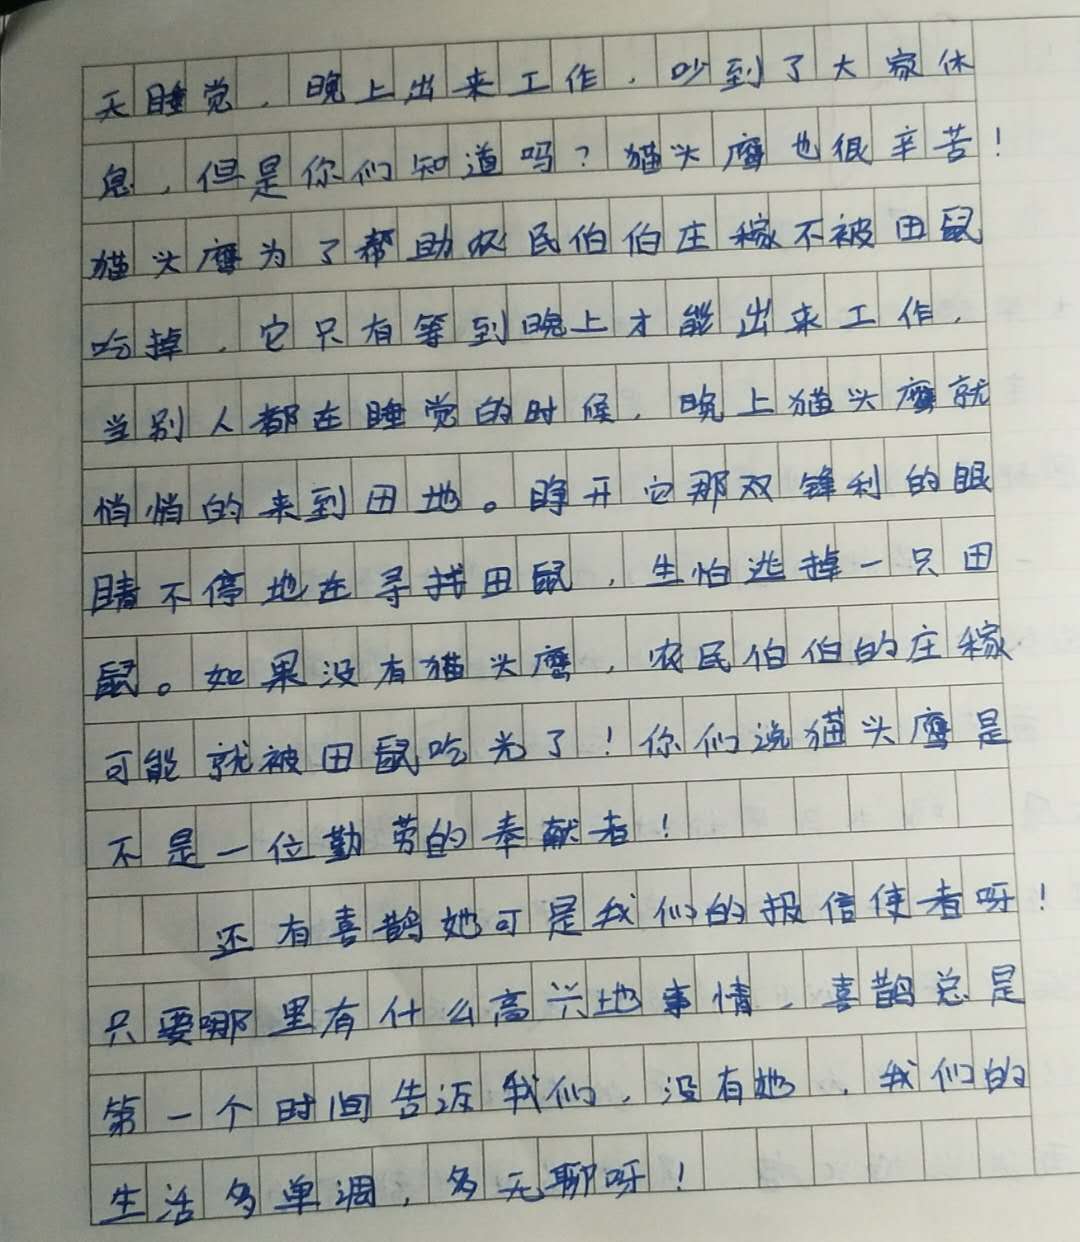 天睡觉，晚上出来工作，吵到了大家休
息，但是你们知道吗？猫头鹰也很辛苦！
猫头鹰为了帮助农民伯伯庄稼不被田鼠
吃掉，它只有等到晚上才能出来工作，
当别人都在睡觉的时候，晚上猫头鹰就
悄悄的来到田地。睁开它那双锋利的眼
睛不停地在寻找田鼠，生怕逃掉一只田
鼠。如果没有猫头鹰，农民伯伯的庄稼
可能就被田鼠吃光了！你们说猫头鹰是
不是一位勤劳的奉献者！
还有喜鹊她可是我们的报信使者呀！
只要哪里有什么高兴地事情，喜鹊总是
第一个时间告诉我们，没有她，我们的
生活多单调，多无聊呀！